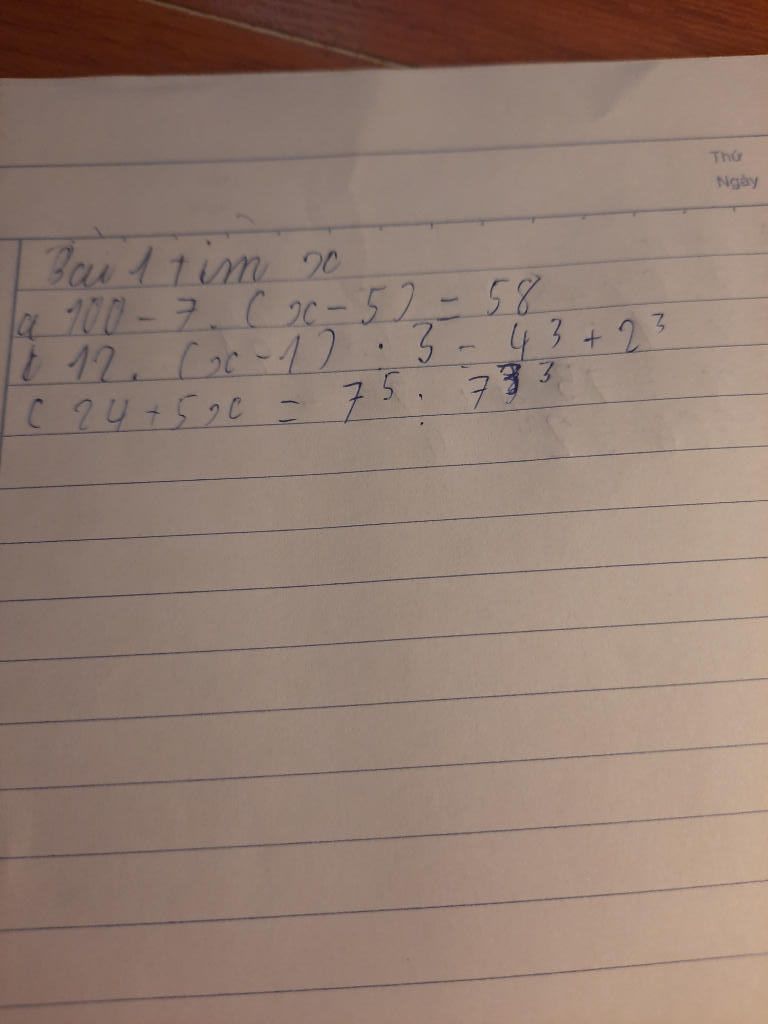 Thứ
Ngày
Bài 1 tìm x
a 100 - 7. (x - 5) = 58
b 12. (x - 1) : 3 = 4³ + 2³
c 24 + 5x = 7⁵ : 7³